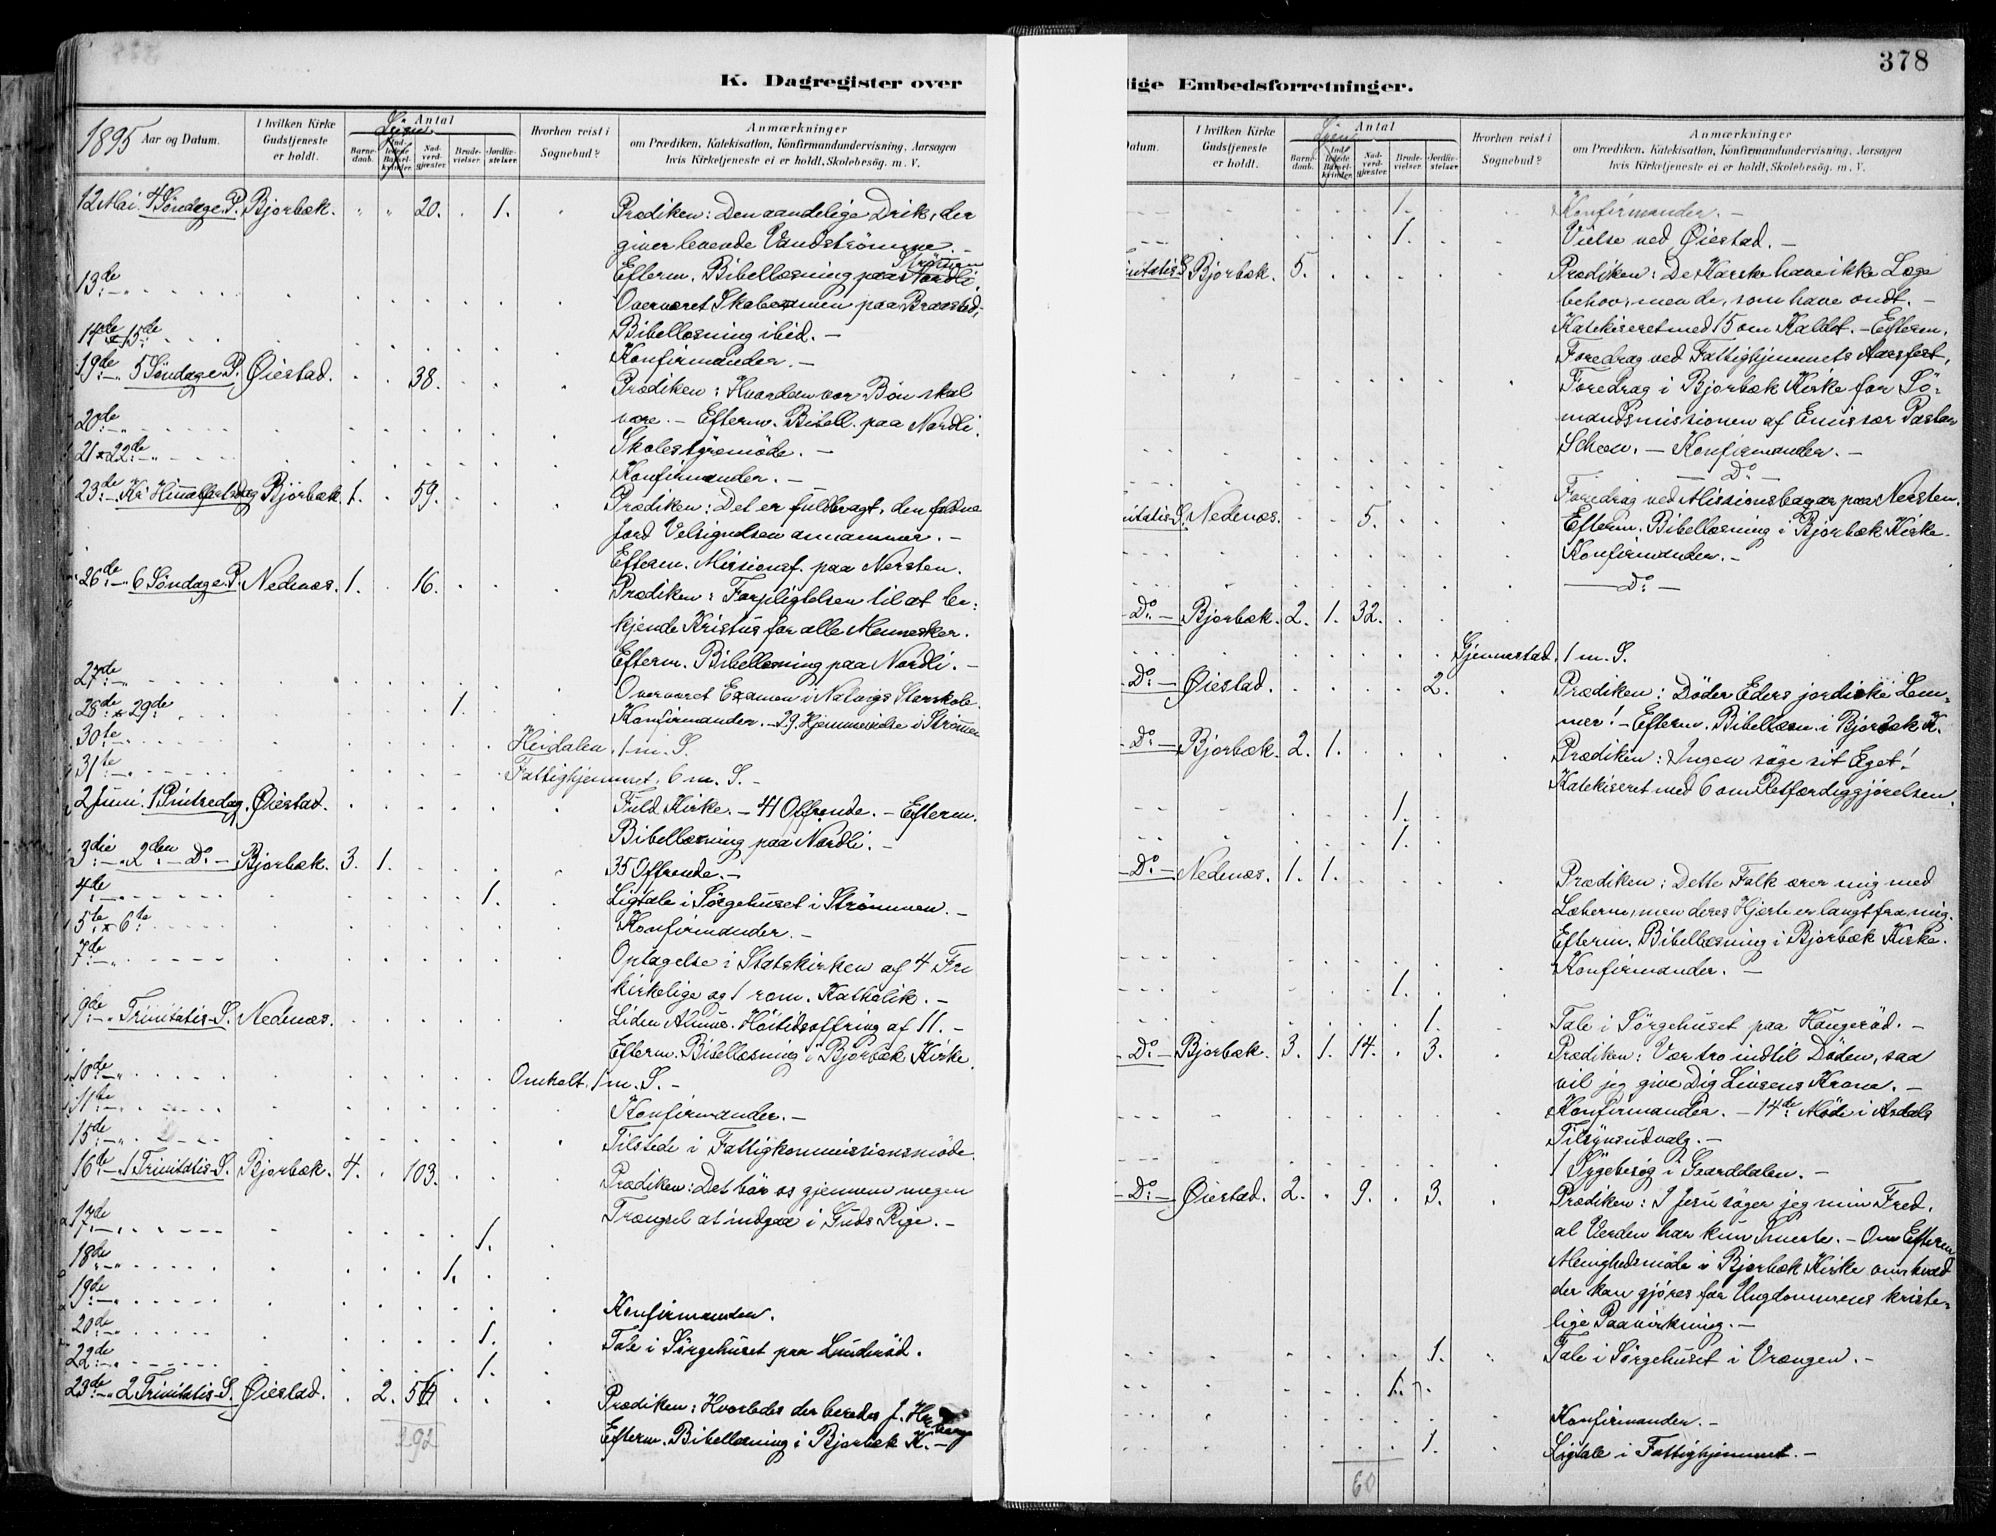 378
K. Dagregister over
lige Embedsforretninger.
1895
Aar og Datum.
I hvilken Kirke Gudstjeneste er holdt.
Antal
Barnedaab.
Nadverdgjester.
Brudevielser.
Jordfæstelser.
Hvorhen reist i Sognebud?
Anmærkninger
om Prædiken, Katekisation, Konfirmandundervisning, Aarsagen
hvis Kirketjeneste ei er holdt, Skolebesøg. m. V.
12 Mai 4 Søndag e. P. Bjorbæk. 20. 1. Prædiken: Den aandelige Drik, der
giver levende Vandstrømme. -
Efterm. Bibellæsning paa Strømmen
13de Overværet Skoleexamen paa Braastad,
Bibellæsning ibid. -
14de & 15de Konfirmander. -
19de 5 Søndag e. P. Øiestad. 38. Prædiken: Hvordan vor Bøn skal
være. - Efterm. Bibell. paa Nordli.
20de Skolestyremøde. -
21 & 22de Konfirmander. -
23de Kr. Himmelfartsdag Bjorbæk. 1. 59. Prædiken: Det er fuldbragt, den faldne
Jord Velsignelsen annammer. -
Efterm. Missionsf. paa Nersten.
26de 6 Søndag e. P. Nedenæs. 1. 16. Prædiken: Forpligtelsen til at be-
kjende Kristus for alle Mennesker.
Efterm. Bibellæsning paa Nordli. -
27de Overværet Examen i Natvigs Storskole.
28de & 29de 1. Konfirmander. - 29. Hjemmevielse i Strømmen
30te Heidalen, 1 m. S.
31te Fattighjemmet, 6 m. S. -
2 Juni. 1 Pintsedag. Øiestad. Fuld Kirke. - 41 Offrende. - Efterm.
Bibellæsning paa Nordli. -
3die 2den Do Bjorbæk. 3. 1. 35 Offrende. -
4de 1. Ligtale i Sørgehuset i Strømmen. -
5te & 6te Konfirmander. -
7de Optagelse i Statskirken af 4 Fri
kirkelige og 1 rom. Katholik. -
9de Trinitatis S. Nedenæs. Liden Almue. Høitidsoffring af 11. -
Efterm. Bibellæsning i Bjorbæk Kirke.
10de Omholt, 1 m. S. -
11te Konfirmander. -
15de Tilstede i Fattigkommissionsmøde.
16de 1 Trinitatis S. Bjorbæk. 4. 103. Prædiken: Det bør os gjennem megen
Trængsel at indgaa i Guds Rige. -
17de 1.
18de 1.
19de Konfirmanden.
20de 1. Tale i Sørgehuset paa Lunderød.
22de 1.
23de 2 Trinitatis S. Øiestad. 2. 54 Prædiken: Hvorledes der beredes J. Herberge
Efterm. Bibellæsning i Bjorbæk K. -
292
Datum.
I hvilken Kirke Gudstjeneste er holdt.
Antal
Barnedaab.
Nadverdgjester.
Brudevielser.
Jordfæstelser.
Hvorhen reist i Sognebud?
Anmærkninger
om Prædiken, Katekisation, Konfirmandundervisning, Aarsagen
hvis Kirketjeneste ei er holdt, Skolebesøg. m. V.
1. Konfirmander. -
1. Vielse ved Øiestad. -
initatis S. Bjorbæk. 5. Prædiken: De Karske have ikke Læge
behov, men de, som have ondt. -
Katekiseret med 15 om Kaldet. - Efterm.
Foredrag ved Fattighjemmets Aarsfest,
Foredrag i Bjorbæk Kirke for Sø-
mandsmissionen af Emissær Pastor
Scheen. - Konfirmander. -
Do
Foredrag ved Missionsbazar paa Nersten.
nitatis S. Nedenæs. 5. Efterm. Bibellæsning i Bjorbæk Kirke.
Konfirmander. -
Do -
Do Bjorbæk. 2. 1. 32.
Gjennestad, 1 m. S.
Do Øiestad. 2. Prædiken: Døder Eders jordiske Lem-
mer! - Efterm. Bibellæsn. i Bjorbæk K.
Do Bjorbæk. 2. 1. Prædiken: Ingen søge sit Eget!
Katekiseret med 6 om Retfærdiggjørelsen.
1.
1.
Do Nedenæs. 1. 1. Prædiken: Dette Folk ærer mig med
Læberne, men deres Hjerte er langt fra mig.
Efterm. Bibellæsning i Bjorbæk Kirke.
Konfirmander. -
1.
1. Tale i Sørgehuset paa Haugerød. -
Do Bjorbæk. 3. 1. 14. 3. Prædiken: Vær tro indtil Døden, saa
vil jeg give Dig Livsens Krone. -
Konfirmander. - 14de Møde i Asdals
Tilsynsudvalg. -
1 Sygebesøg i Gaarddalen. -
Do Øiestad. 2. 9. 3. Prædiken: I Jesu søger jeg min Fred,
al Verden har kun Smerte. - Om Efterm
Menighedsmøde i Bjorbæk Kirke om hvad
der kan gjøres for Ungdommens kriste-
lige Paavirkning. -
1. Tale i Sørgehuset i Vrængen. -
1.
Konfirmander. -
1. Ligtale i Fattighjemmet. -
60